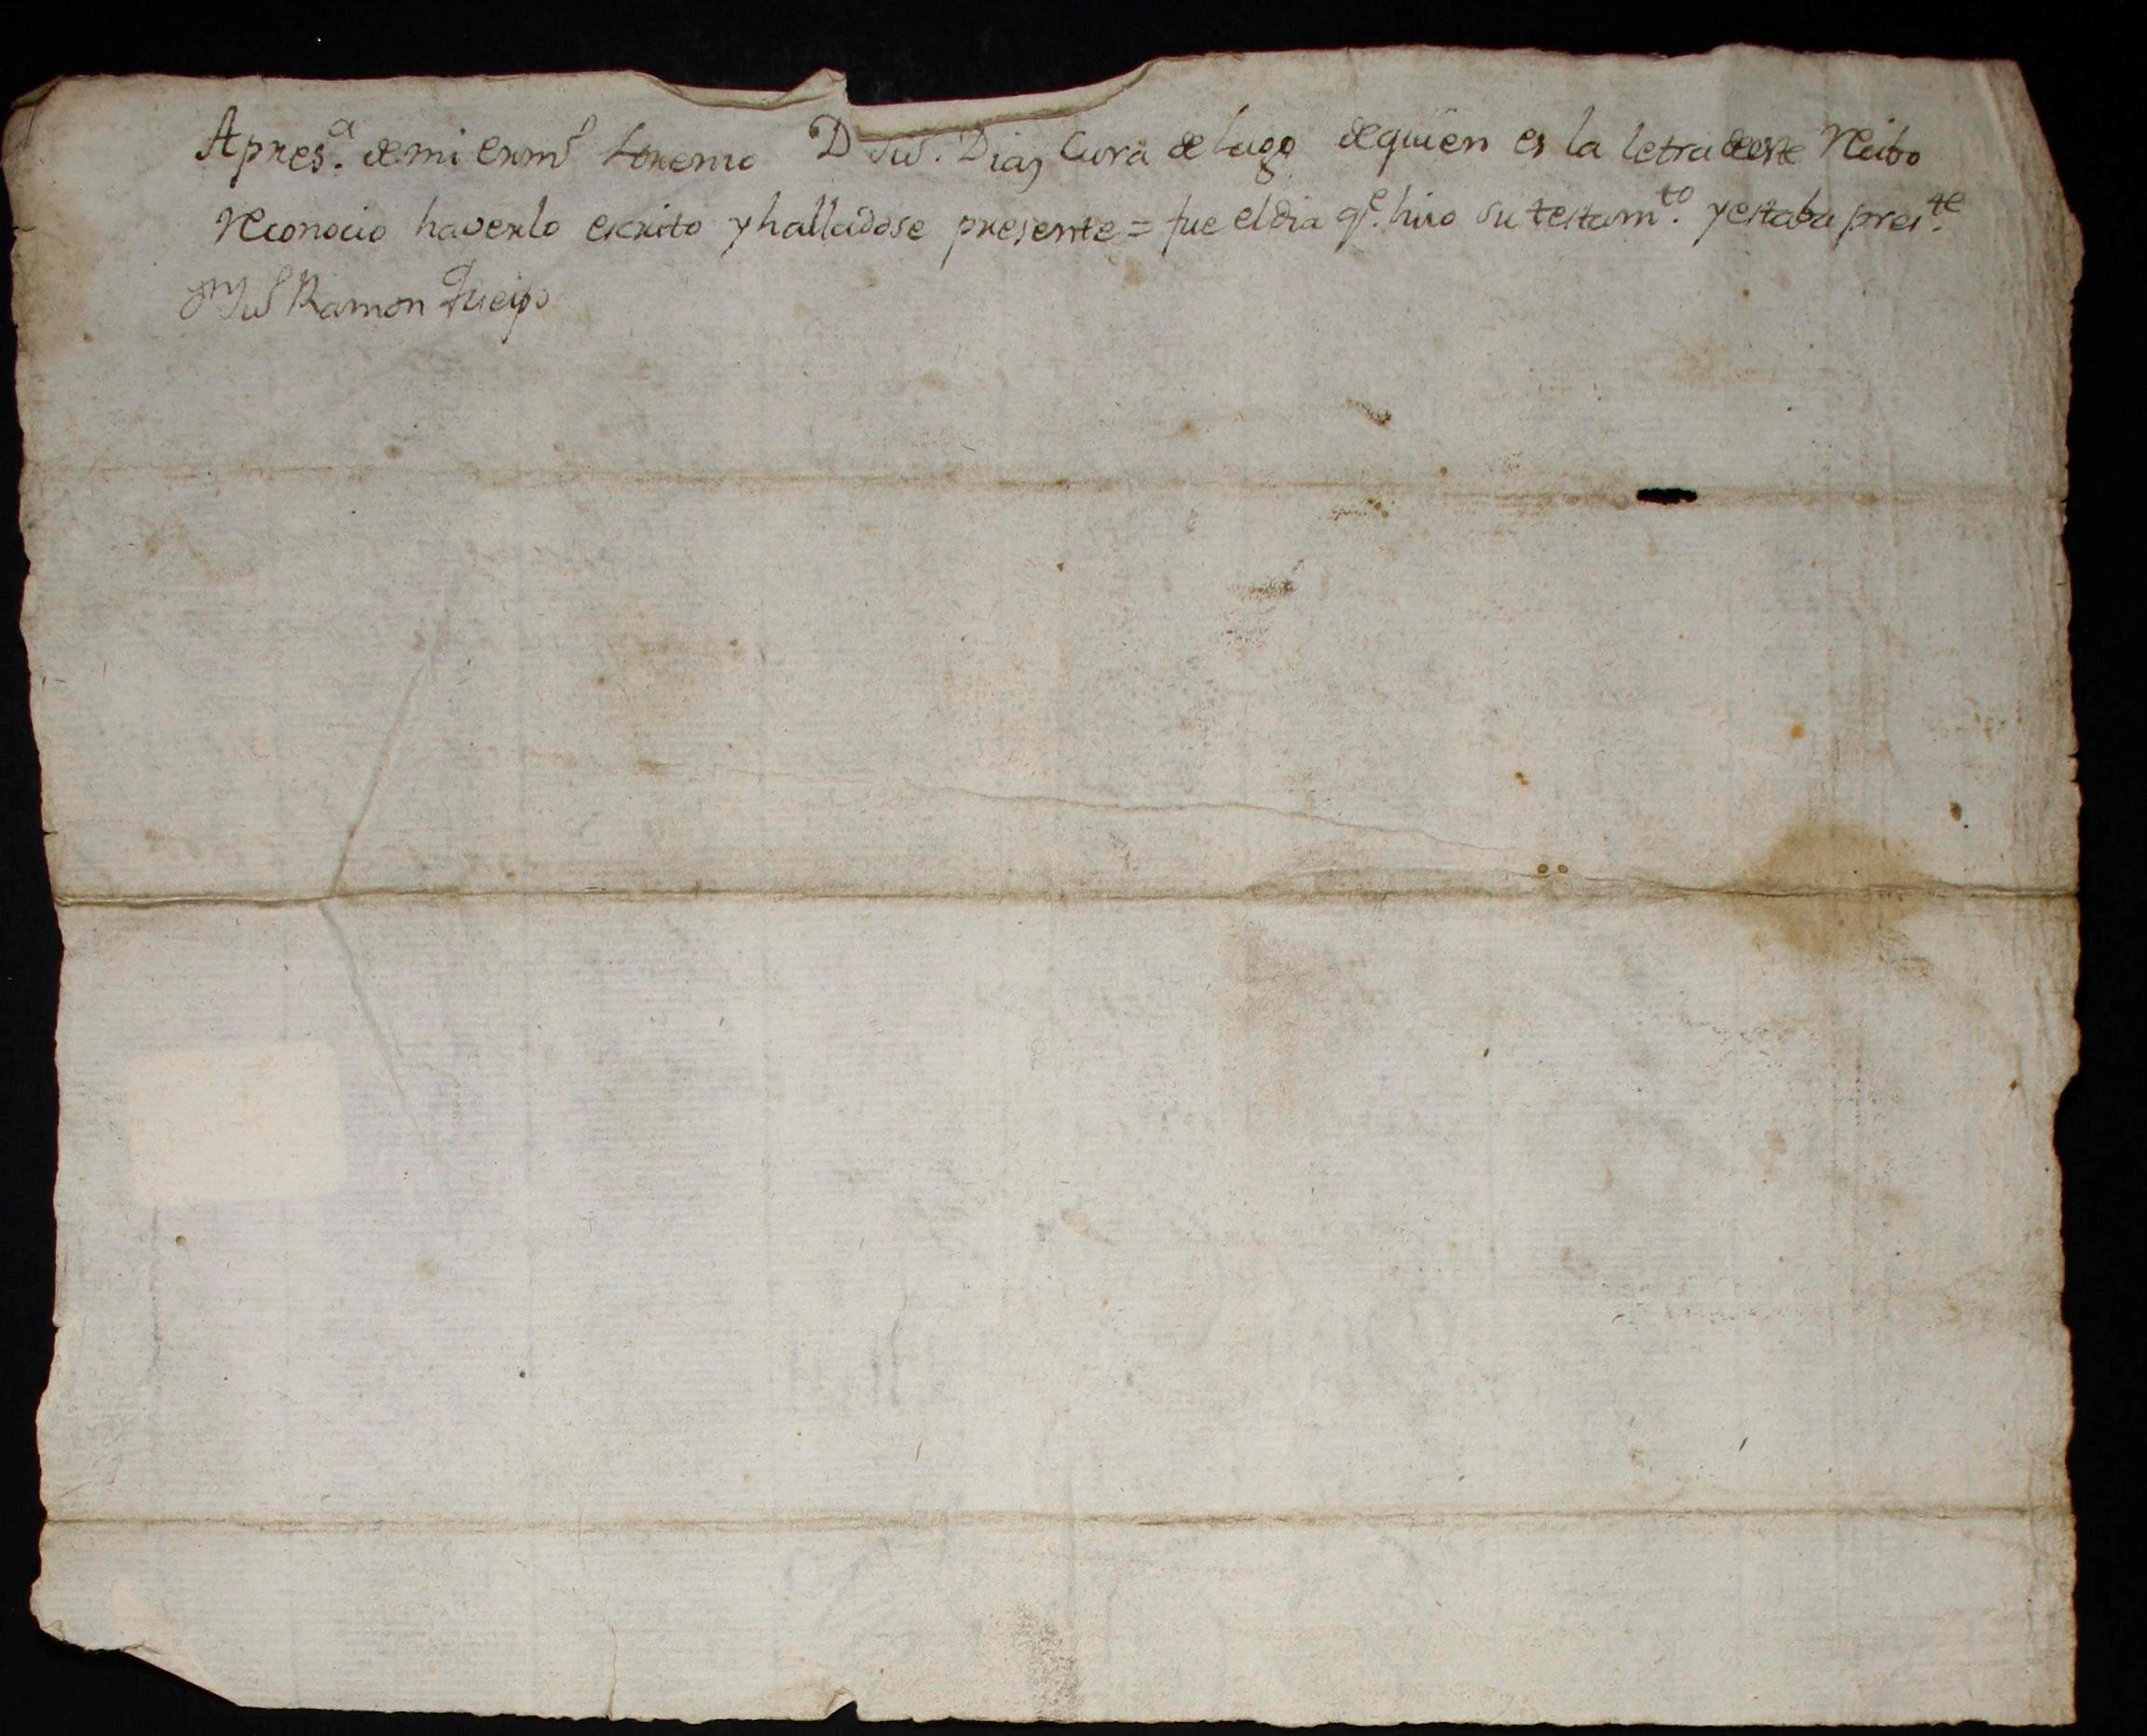 Apres.ª de mi erm.º Lorenzo D Ju.º Diaz Cura de Lugo de quien es la letra de este Recibo
Reconocio haverlo escrito y halladose presente = fue el dia q.e hizo su testam.to y estaba pres.te
Ramon